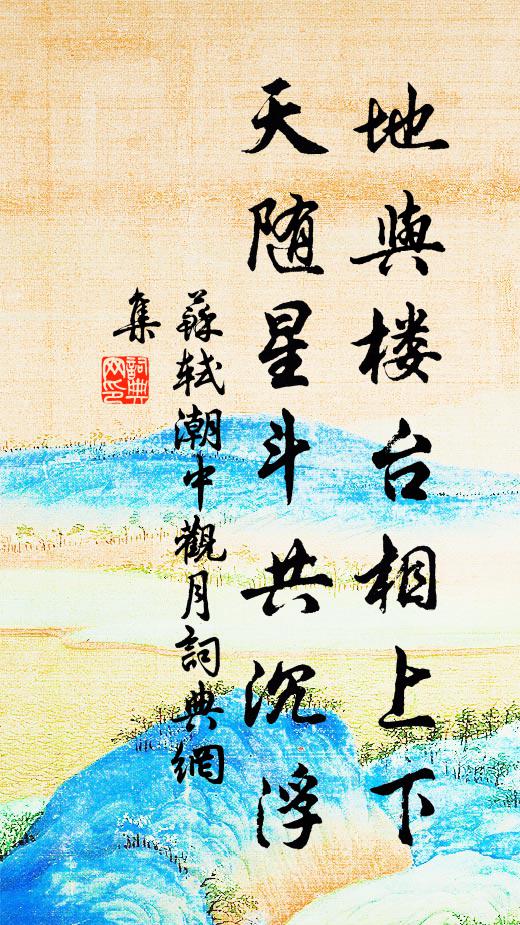 地與楼台相上下
天随星斗共沉浮
蘇軾潮中觀月詞典網
集
詞典
网印